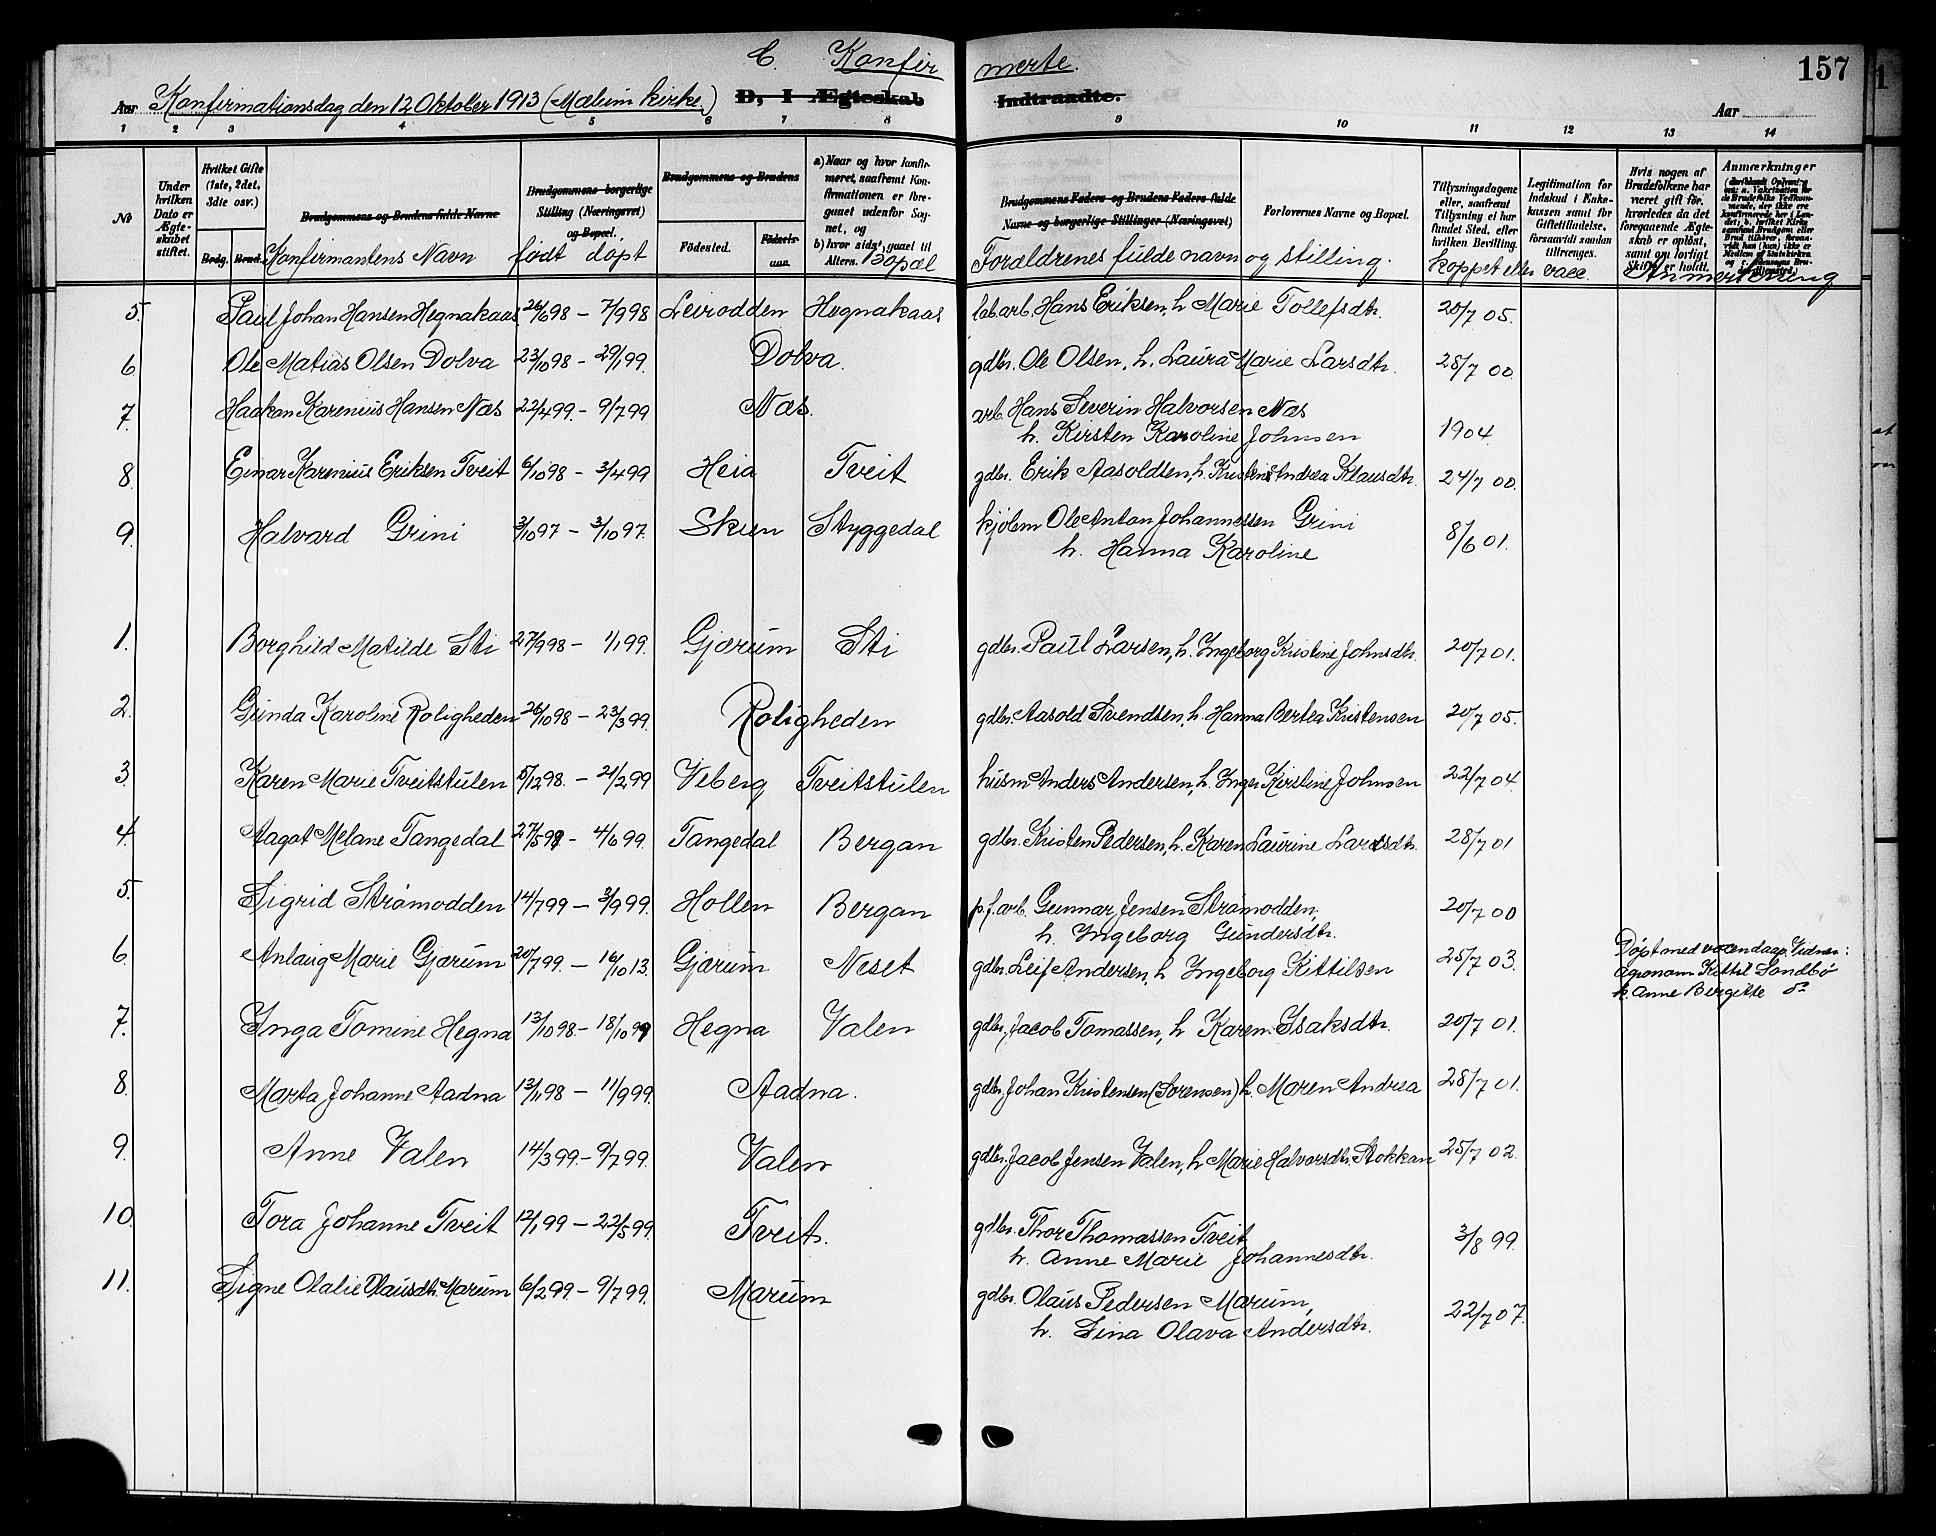 C. Konfirmerte.
157
Aar Konfirmationsdag den 12 Oktober 1913 (Mælum kirke.) D, I Ægteskab Indtraadte. Aar
1 2 3 4 5 6 7 8 9 10 11 12 13 14
No
Under hvilken Dato er Ægteskabet stiftet.
Hvilket Gifte (1ste, 2det, 3die osv.)
Brdg. Brud.
Brudgommens og Brudens fulde Navne
Konfirmantens Navn
Brudgommens borgerlige Stilling (Næringsvei) og Bopæl.
født døpt
Brudgommens og Brudens
Födested. Födselsaar.
a) Naar og hvor konfirmeret, saafremt Konfirmationen er foregaaet udenfor Sognet, og
b) hvor sidst gaaet til Alters.
Bopæl
Brudgommens Faders og Brudens Faders fulde Navne og borgerlige Stillinger (Næringsvei)
Forlovernes Navne og Bopæl.
Forældrenes fulde navn og stilling.
Tillysningsdagene eller, saafremt Tillysning ei har fundet Sted, efter hvilken Bevilling.
koppet eller vacc.
Legitimation for Indskud i Enkekassen samt for Giftetilladelse, forsaavidt saadan tiltrænges.
Hvis nogen af Brudefolkene har været gift för, hvorledes da det foregaaende Ægteskab er oplöst, samt om lovligt Skifte er holdt.
Anmærkninger
Anmerkning
5. Paul Johan Hansen Hegnakaas 26/6 98 – 7/9 98 Leirodden Hegnakaas løb.arb. Hans Eriksen, h. Marie Tollefsdtr. 20/7 05.
6 Ole Matias Olsen Dolva 23/10 98 – 29/1 99. Dolva. gdbr. Ole Olsen, h. Laura Marie Larsdtr. 28/7 00.
7. Haakon Karenius Hansen Næs 22/4 99. – 9/7 99 Næs. arb. Hans Severin Halvorsen Næs
h. Kirsten Karoline Johnsen 1904.
8. Einar Karenius Eriksen Tveit 6/10 98 – 3/4 99 Heia Tveit gdbr. Erik Aasoldsen, h. Kirstine Andrea Klausdtr. 24/7 00.
9. Halvard Grini 3/10 97 – 3/10 97. Skien Styggedal kjølem Ole Anton Johannessen Grini
h. Hanna Karoline 8/6 01.
1. Borghild Matilde Sti 27/9 98 – 1/1 99. Gjærum Sti gdbr. Paul Larsen, h. Ingeborg Kristine Johnsdtr. 20/7 01.
2. Gunda Karoline Roligheden 26/10 98 – 23/3 99. Roligheden gdbr. Aasold Svendsen, h. Hanna Bertea Kristensen 20/7 05.
3. Karen Marie Tveitstulen 5/12 98. – 21/2 99 Veberg Tveitstulen husm Anders Andersen, h. Inger Kirstine Johnsen 22/7 04.
4. Aagot Melane Tangedal 27/5 99 – 4/6 99. Tangedal Bergan gdbr. Kristen Pedersen, h. Karen Laurine Larsdtr. 28/7 01
5. Sigrid Strømodden 14/7 99 – 3/9 99. Hollen Bergan p.f.arb. Gunnar Jensen Strømodden,
h. Ingeborg Gundersdtr. 20/7 00
6. Anlaug Marie Gjærum 20/7 99. – 16/10 13. Gjærum Neset gdbr. Leif Andersen, h Ingeborg Kittilsen 25/7 03. Døpt med voxendaap. Vidner:
agronom Kittil Sandbø
h. Anne Bergitte do
7. Inga Tomine Hegna 13/10 98 – 18/10 99 Hegna Valen gdbr. Jacob Tomassen, h Karen Isaksdtr. 20/7 01.
8. Marta Johanne Aadna 13/11 98 – 11/9 99. Aadna. gdbr. Johan Kristensen (Sorensen) h. Maren Andrea 28/7 01.
9. Anne Valen 14/3 99. – 9/7 99. Valen gdbr. Jacob Jensen Valen, h Marie Halvorsdtr. Stokkan 25/7 02.
10. Tora Johanne Tveit 12/1 99 – 22/5 99 Tveit. gdbr. Thor Thomassen Tveit
h. Anne Marie Johannesdtr. 3/8 99.
11. Signe Olalie Olausdtr. Marum 6/2 99 – 9/7 99. Marum gdbr. Olaus Pedersen Marum,
h. Lina Olava Andersdtr. 22/7 07.